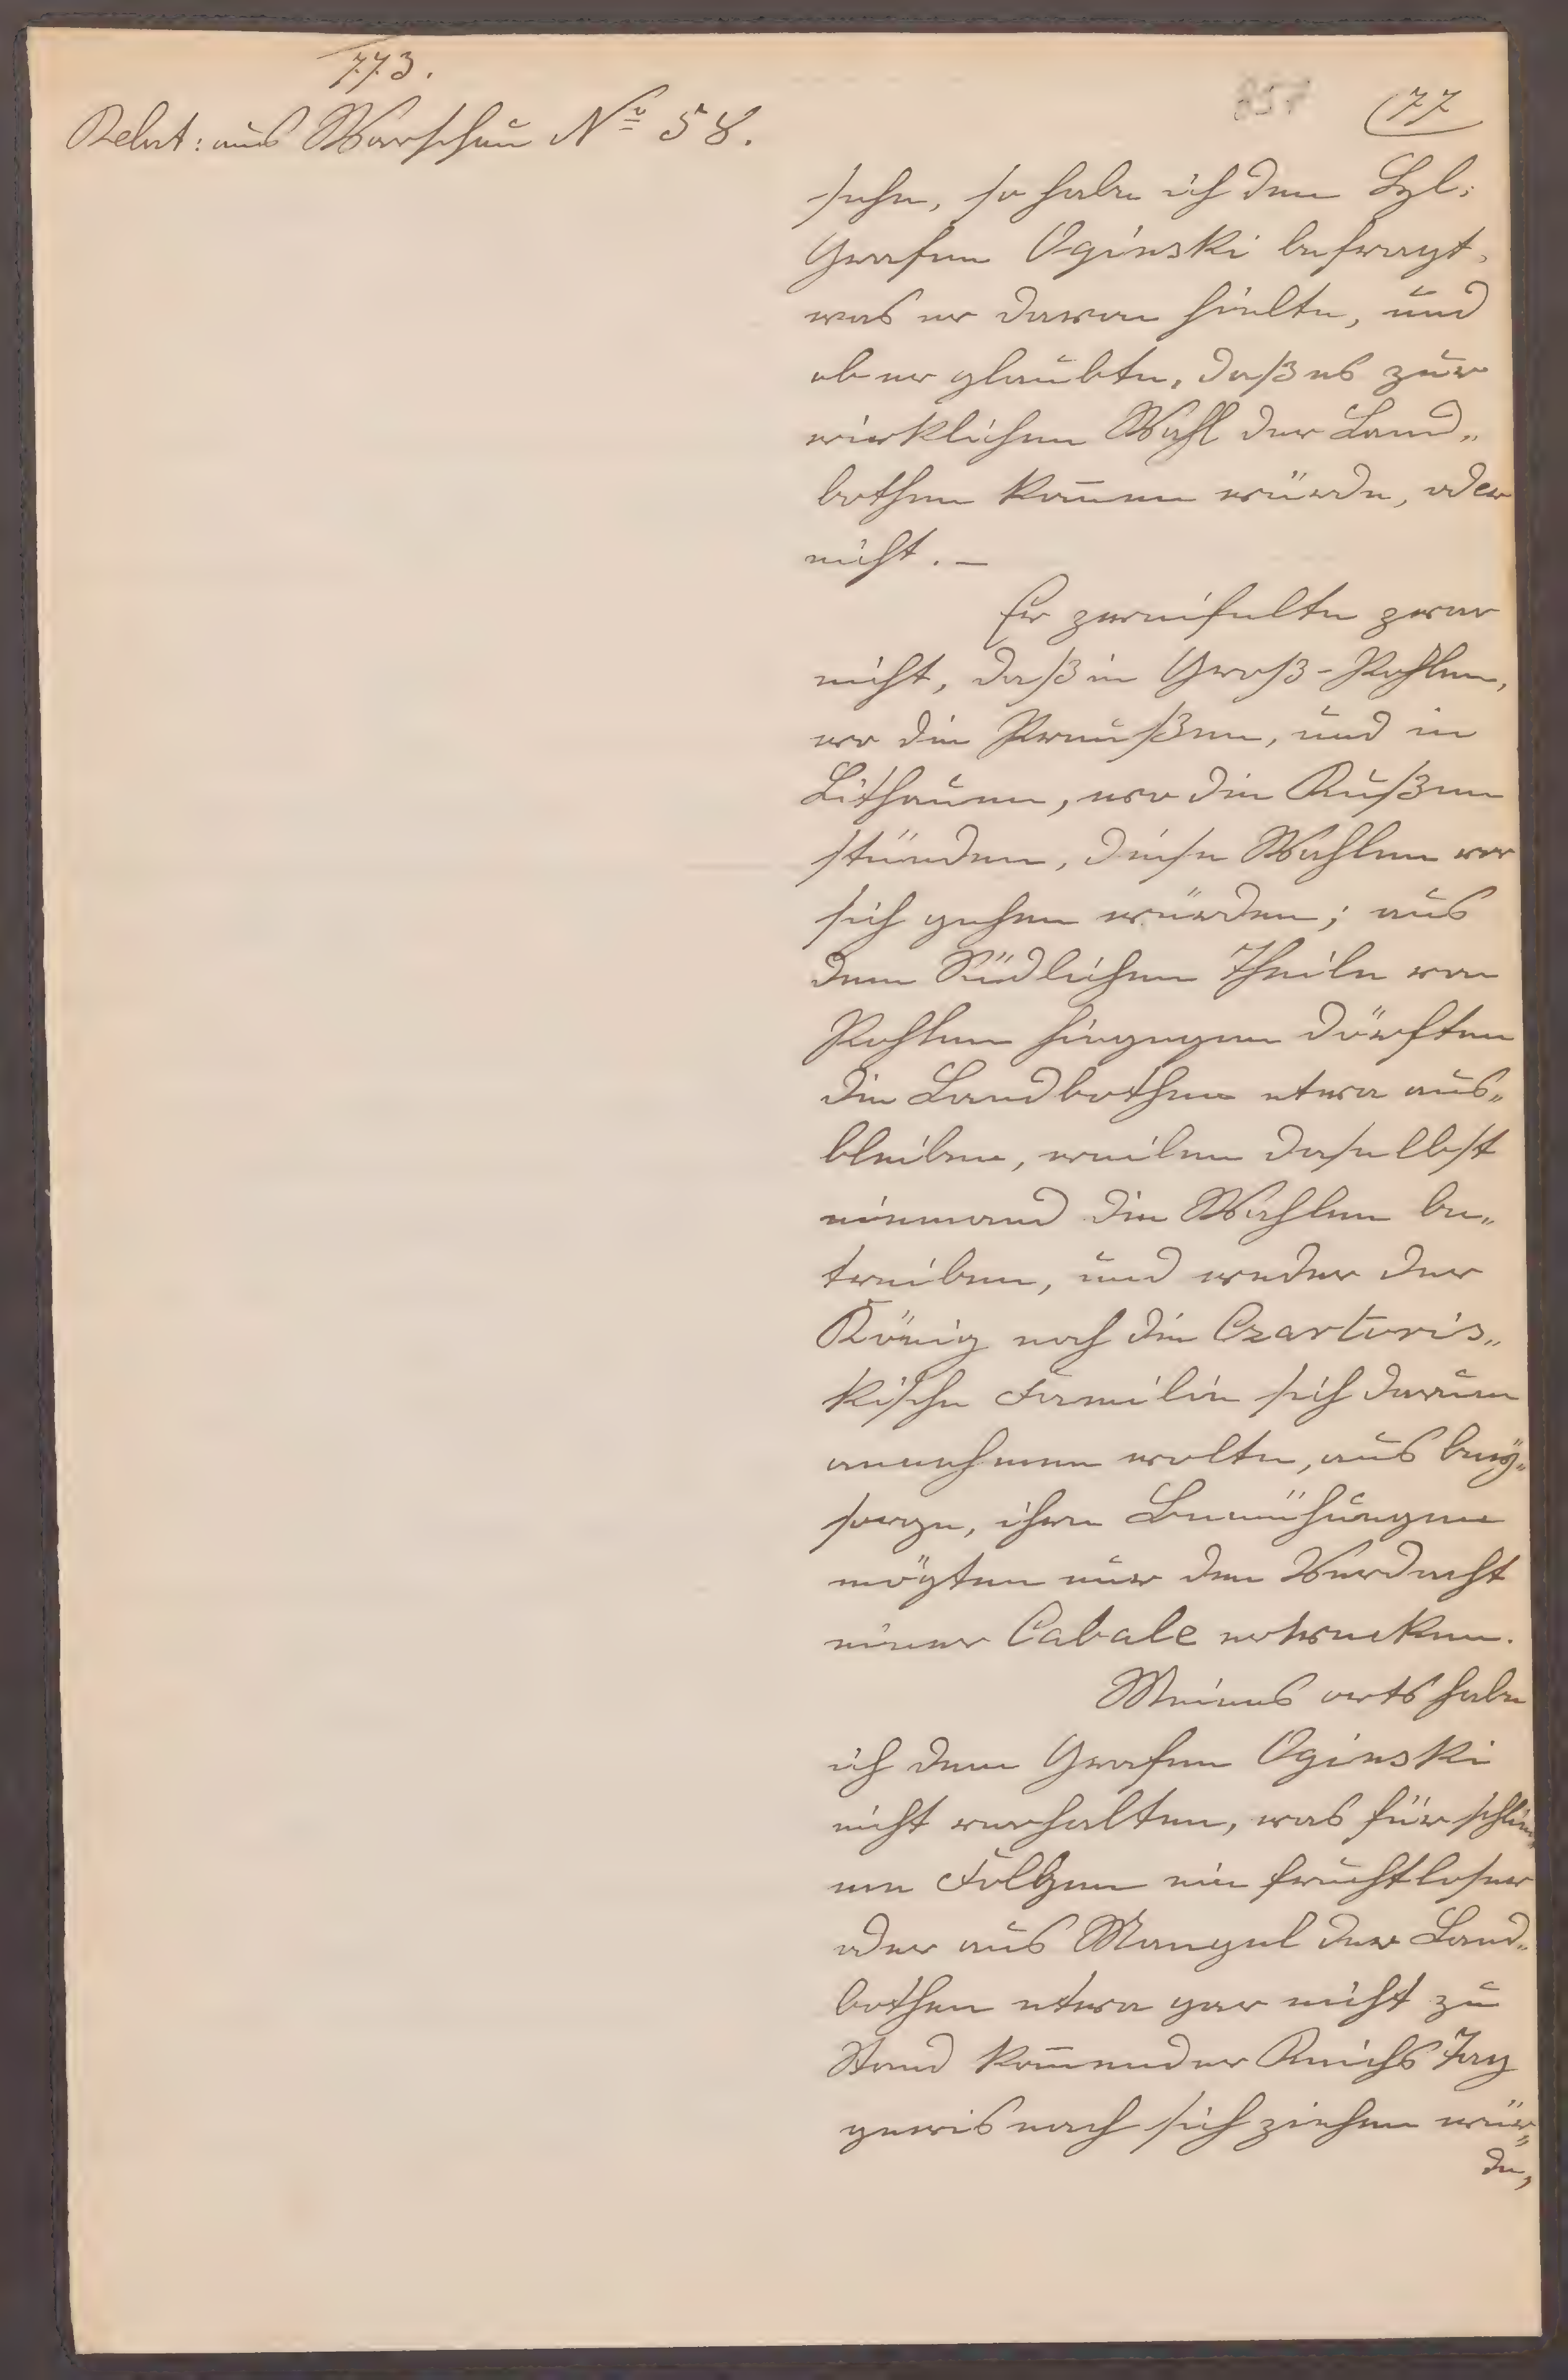 773.
Relat: aus Warschau No 58.
77
sehe, so habe ich den Gzl:
Grafen Oginski befragt,
was er davon hielte, und
ob er glaubte, daß es zur
wirklichen Wahl der Land„
bothen kom̄en würde, oder
nicht. —
Er zweifelte zwar
nicht, daß in Groß-Pohlen,
wo die Preußen, und in
Lithauen, wo die Rußen
stünden, diese Wahlen vor
sich gehen würden; aus
dem Südlichen Theile von
Pohlen hingegen dörften
die Landbothen etwa aus„
bleiben, weilen daselbst
niemand die Wahlen be„
treiben, und weder der
König noch die Czartoris„
kische Familie sich darum
annehmen wolte, aus bey„
sorge, ihre Bemühungen
mögten nur den Verdacht
einer Cabale erwecken.
Meines orts habe
ich dem Grafen Oginski
nicht verhalten, was für schlim„
me Folgen ein fruchtloser
oder aus Mangel der Land„
bothen etwa gar nicht zu
Stand kom̄ender Reichs Tag
gewis nach sich ziehen wür„
de,